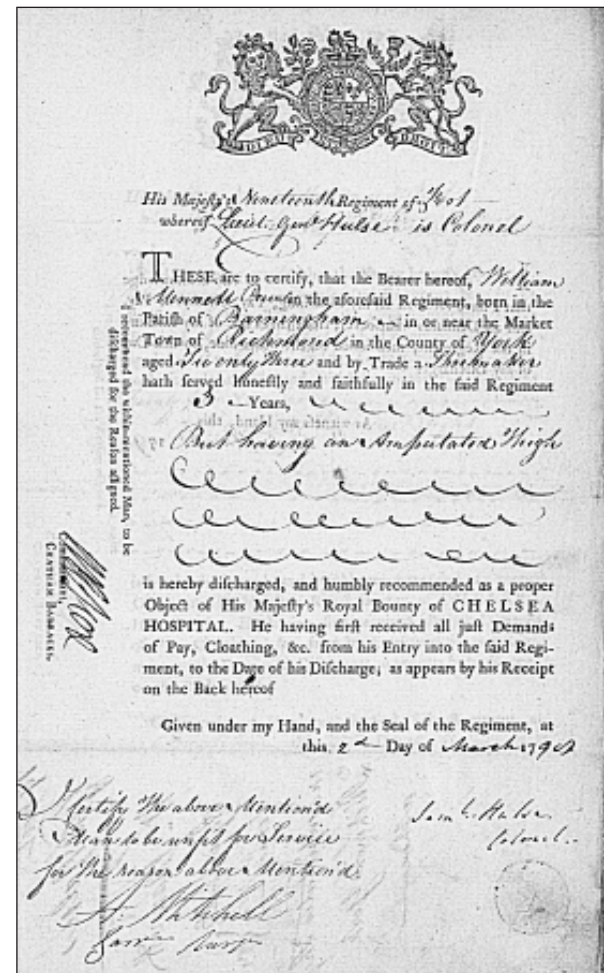 DIEU ET MON DROIT
His Majesty's Nineteenth Regiment of Foot
whereof Lieut. Genl. Hulse is Colonel
THESE are to certify, that the Bearer hereof, William
Mennell in the aforesaid Regiment, born in the
Parish of Barningham in or near the Market
Town of Richmond in the County of York
aged Twenty Three and by Trade a Shoemaker
hath served honestly and faithfully in the said Regiment
3 Years,
But having an Amputated Thigh
is hereby discharged, and humbly recommended as a proper
Object of His Majesty's Royal Bounty of CHELSEA
HOSPITAL. He having first received all just Demands
of Pay, Cloathing, &c. from his Entry into the said Regi-
ment, to the Date of his Discharge; as appears by his Receipt
on the Back hereof
Given under my Hand, and the Seal of the Regiment, at
this 2d Day of March 179
I recommend the within-mentioned Man, to be
discharged for the Reason assigned.
CHATHAM BARRACKS,
I Certify the above Mention'd
Man to be unfit for Service
for the reason above Mention'd
A. Mitchell
Saml. Hulse
Colonel